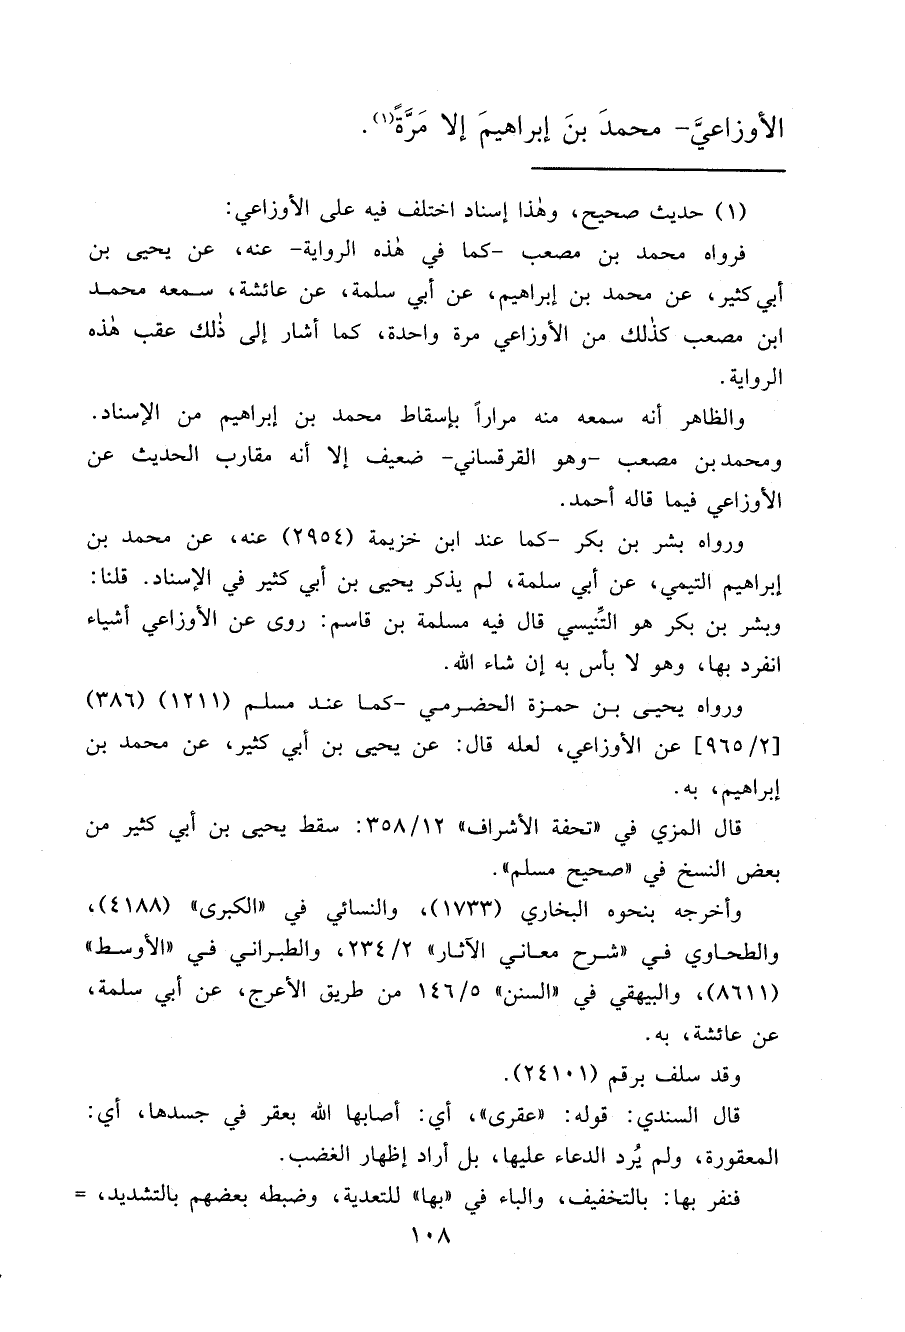 الأوزاعيَّ- محمدَ بنَ إبراهيمَ إلا مَرَّةً(١).
(١) حديث صحيح، وهٰذا إسناد اختلف فيه على الأوزاعي:
فرواه محمد بن مصعب -كما في هٰذه الرواية- عنه، عن يحيى بن
أبي كثير، عن محمد بن إبراهيم، عن أبي سلمة، عن عائشة، سمعه محمد
ابن مصعب كذٰلك من الأوزاعي مرة واحدة، كما أشار إلى ذٰلك عقب هٰذه
الرواية.
والظاهر أنه سمعه منه مراراً بإسقاط محمد بن إبراهيم من الإسناد.
ومحمد بن مصعب -وهو القرقساني- ضعيف إلا أنه مقارب الحديث عن
الأوزاعي فيما قاله أحمد.
ورواه بشر بن بكر -كما عند ابن خزيمة (٢٩٥٤) عنه، عن محمد بن
إبراهيم التيمي، عن أبي سلمة، لم يذكر يحيى بن أبي كثير في الإسناد. قلنا:
وبشر بن بكر هو التِّنيسي قال فيه مسلمة بن قاسم: روى عن الأوزاعي أشياء
انفرد بها، وهو لا بأس به إن شاء الله.
ورواه يحيى بن حمزة الحضرمي -كما عند مسلم (١٢١١) (٣٨٦)
[٩٦٥/٢] عن الأوزاعي، لعله قال: عن يحيى بن أبي كثير، عن محمد بن
إبراهيم، به.
قال المزي في «تحفة الأشراف» ٣٥٨/١٢: سقط يحيى بن أبي كثير من
بعض النسخ في «صحيح مسلم».
وأخرجه بنحوه البخاري (١٧٣٣)، والنسائي في «الكبرى» (٤١٨٨)،
والطحاوي في «شرح معاني الآثار» ٢٣٤/٢، والطبراني في «الأوسط»
(٨٦١١)، والبيهقي في «السنن» ١٤٦/٥ من طريق الأعرج، عن أبي سلمة،
عن عائشة، به.
وقد سلف برقم (٢٤١٠١).
قال السندي: قوله: «عقرى»، أي: أصابها الله بعقر في جسدها، أي:
المعقورة، ولم يُرد الدعاء عليها، بل أراد إظهار الغضب.
فنفر بها: بالتخفيف، والباء في «بها» للتعدية، وضبطه بعضهم بالتشديد، =
١٠٨